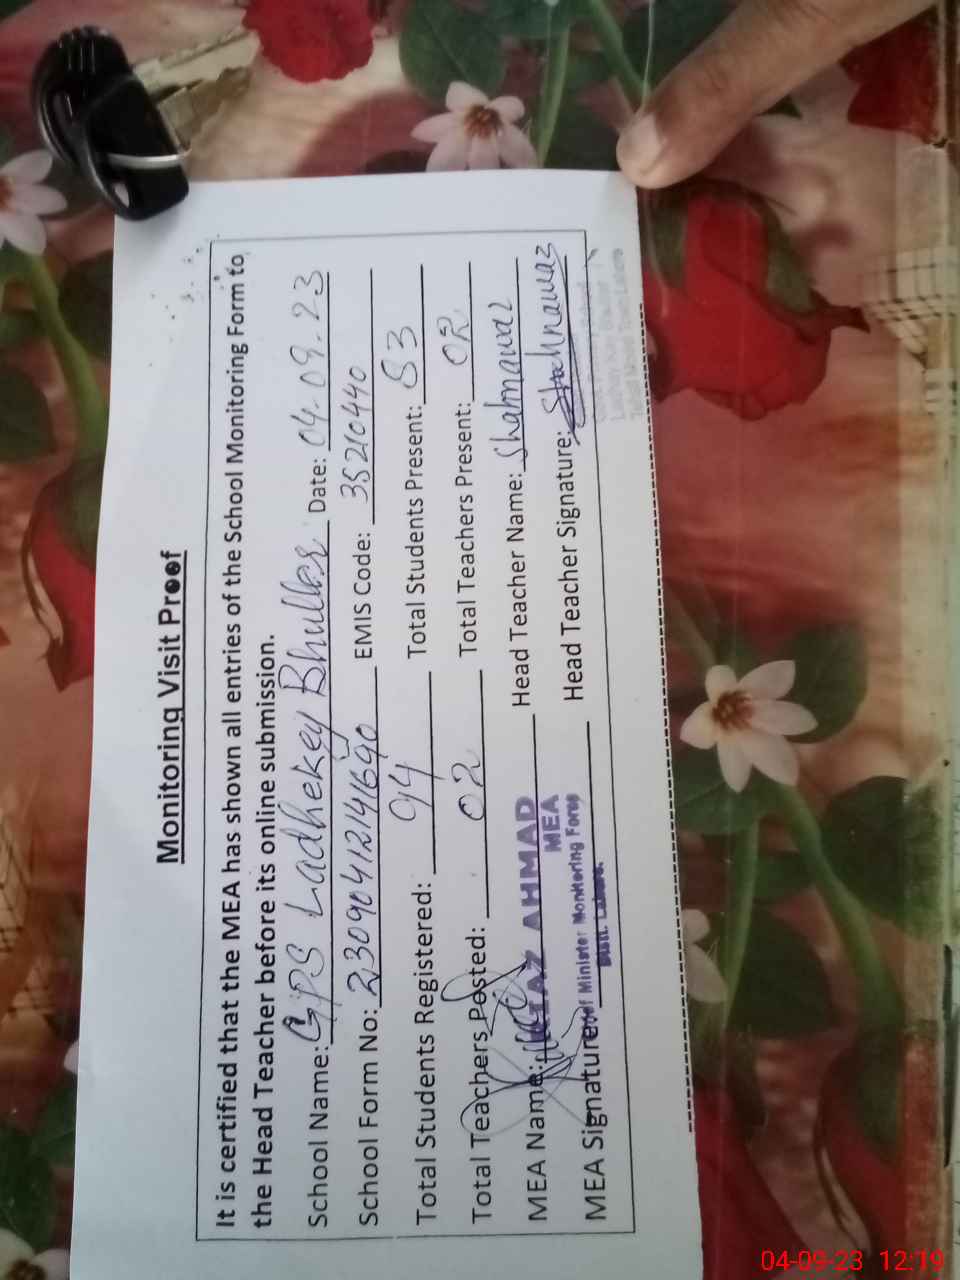 Monitoring Visit Proof
It is certified that the MEA has shown all entries of the School Monitoring Form to
the Head Teacher before its online submission.
School Name: GPS Ladhekey Bhullar Date: 04.09.23
School Form No: 23090412141690 EMIS Code: 35210440
Total Students Registered: 94 Total Students Present: 83
Total Teachers Posted: 02 Total Teachers Present: 02
MEA Name: AHMAD Head Teacher Name: Shahnawaz
MEA
MEA Signature: Minister Monitoring Force Head Teacher Signature: Shahnawaz
Distt. Lahore.
04-09-23 12:19